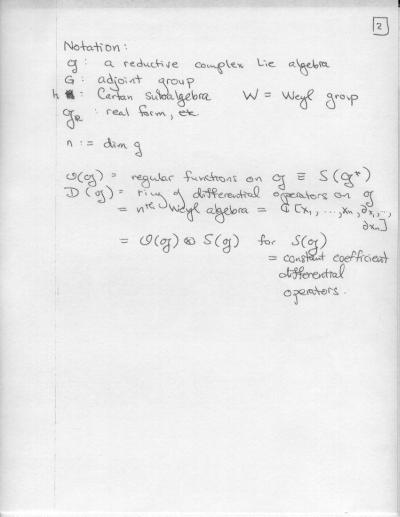 2
Notation:
g : a reductive complex Lie algebra
G : adjoint group
h : Cartan subalgebra W = Weyl group
g_R : real form, etc
n := dim g
O(g) = regular functions on g ≡ S(g*)
D(g) = ring of differential operators on g
= nth Weyl algebra = ℂ[x₁, ..., xₙ, ∂x₁, ..,
∂xₙ]
= O(g) ⊗ S(g) for S(g)
= constant coefficient
differential
operators.